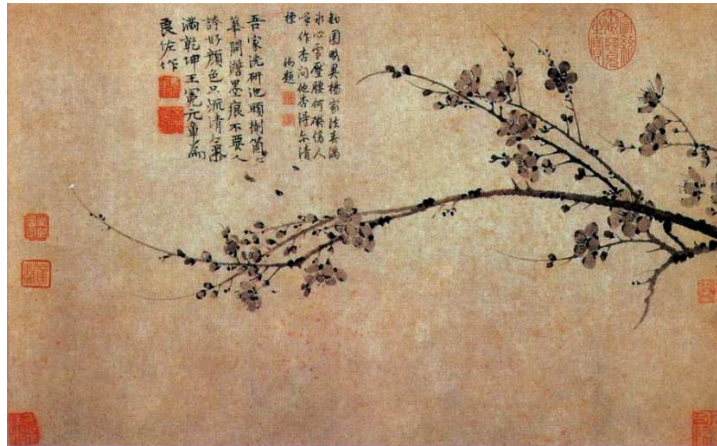 鉤圈略異楊家法春滿
冰心雪壓腰何礙傍人
喚作杏問他杏得尓清
標 御題
吾家洗研池頭樹箇〻
華開澹墨痕不要人
誇好顏色只流清气
滿乾坤王冕元章為
良佐作